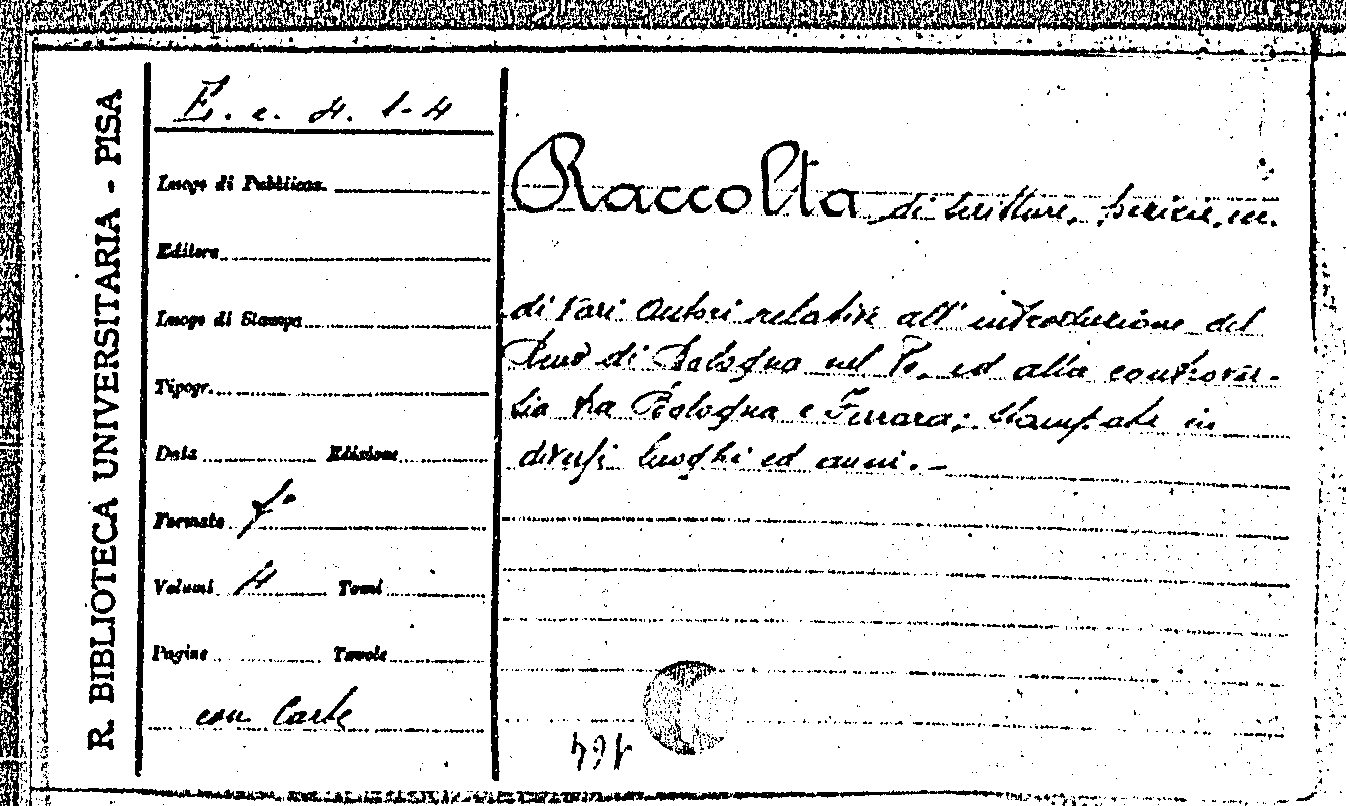 R. BIBLIOTECA UNIVERSITARIA - PISA
E. c. 4. 1-4
Luogo di Pubblicaz.
Editore
Luogo di Stampa
Tipogr.
Data Edizione
Formato f°
Volumi 4 Tomi
Pagine Tavole
con Carte
Raccolta di scritture, perizie, ecc.
di vari autori relative all' introduzione del
Reno di Bologna nel Po, ed alla controver-
sia tra Bologna e Ferrara; stampate in
diversi luoghi ed anni. -